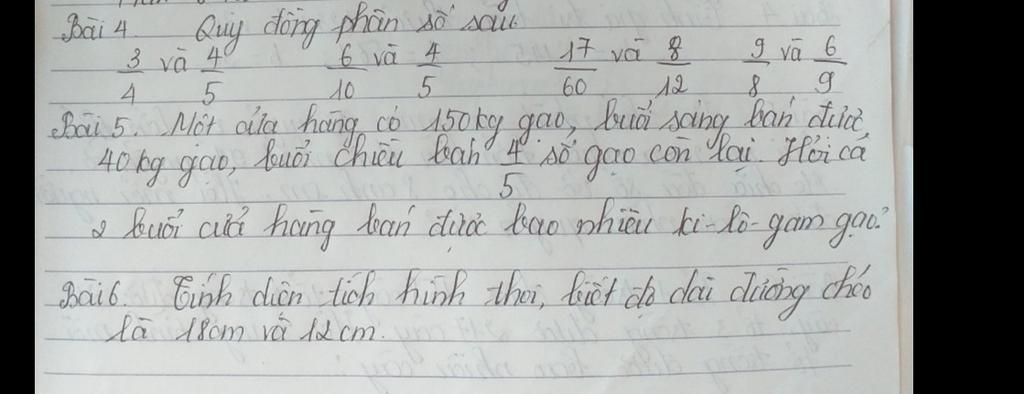 Bài 4 Quy đồng phân số sau
3/4 và 4/5 6/10 và 4/5 17/60 và 8/12 9/8 và 6/9
Bài 5. Một cửa hàng có 150kg gạo, buổi sáng bán được
40kg gạo, buổi chiều bán 4/5 số gạo còn lại. Hỏi cả
2 buổi cửa hàng bán được bao nhiêu ki-lô-gam gạo?
Bài 6. Tính diện tích hình thoi, biết độ dài đường chéo
là 18cm và 12cm.